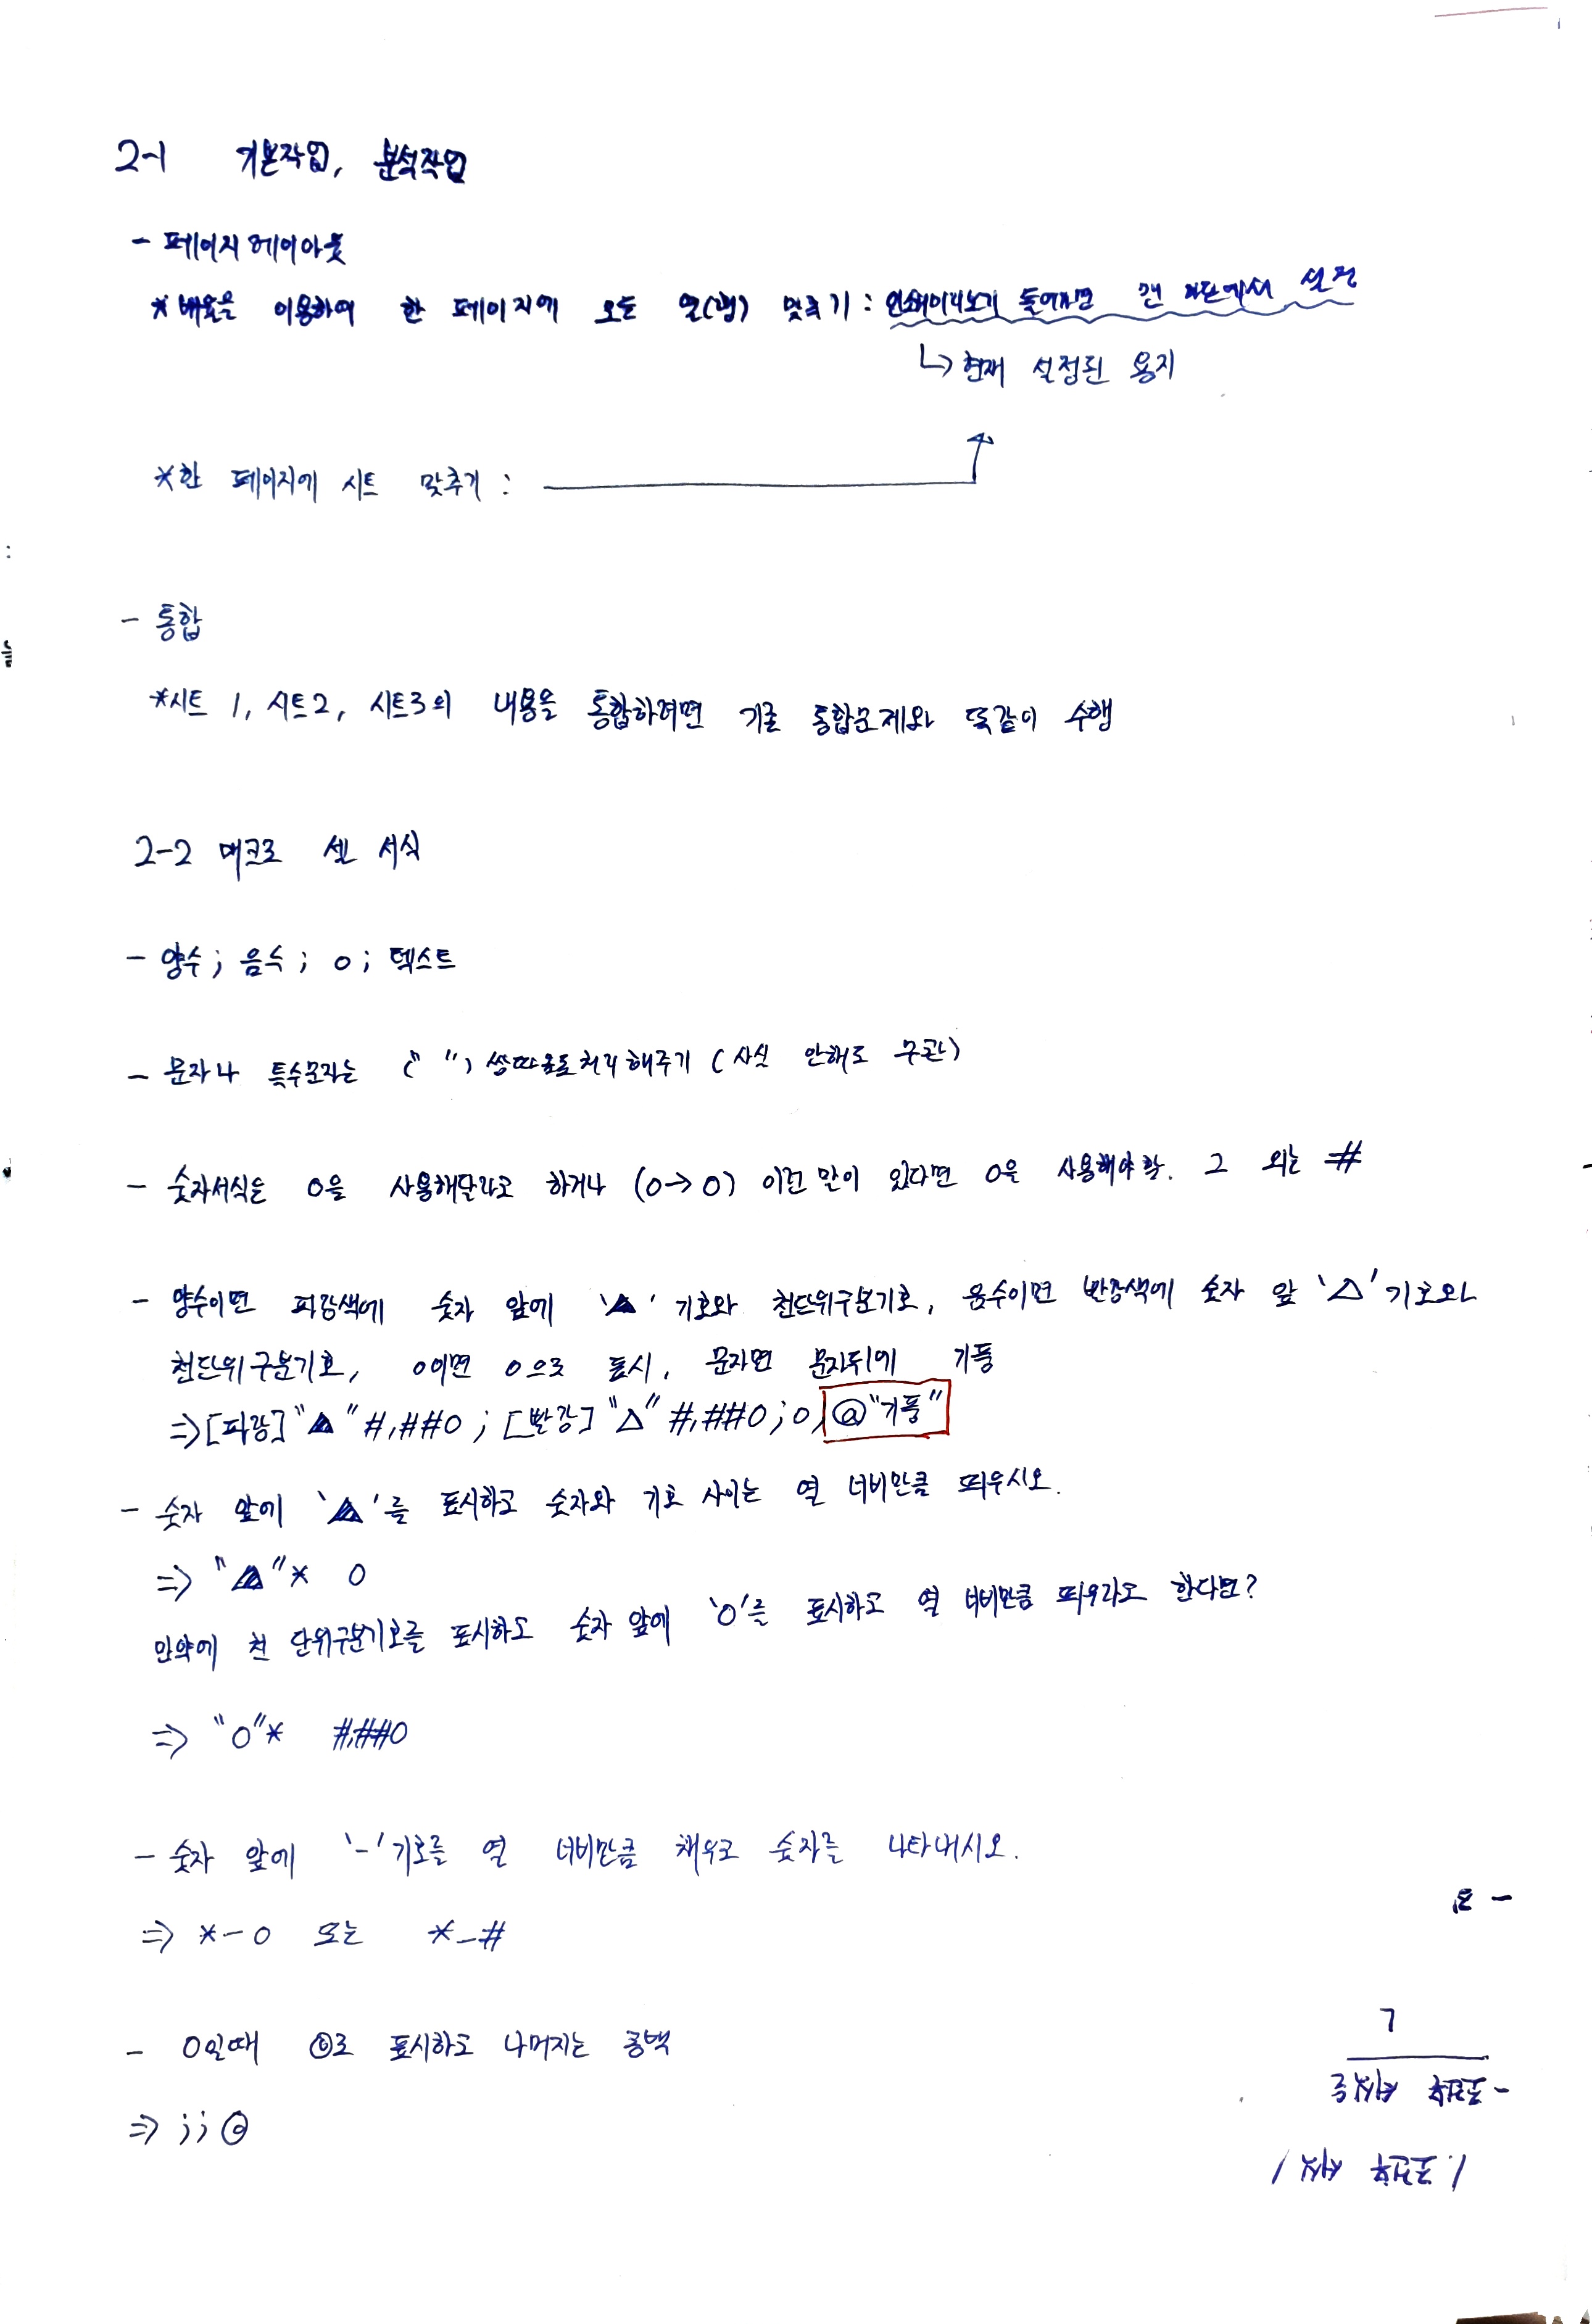 2-1 기본작업, 분석작업
- 페이지 레이아웃
* 배율을 이용하여 한 페이지에 모든 열(행) 맞추기 : 인쇄미리보기 들어가면 맨 하단에서 설정
↳ 현재 설정된 용지
* 한 페이지에 시트 맞추기 :
- 통합
* 시트 1, 시트2, 시트3의 내용을 통합하려면 기출 통합문제와 똑같이 수행
2-2 매크로 셀 서식
- 양수 ; 음수 ; 0 ; 텍스트
- 문자나 특수문자는 (" ") 쌍따옴표처리해주기 (사실 안해도 무관)
- 숫자서식은 0을 사용해달라고 하거나 (0→0) 이런 말이 있다면 0을 사용해야함. 그 외는 #
- 양수이면 파랑색에 숫자 앞에 '▲' 기호와 천단위구분기호, 음수이면 빨강색에 숫자 앞 '△' 기호와
천단위구분기호, 0이면 0으로 표시, 문자면 문자뒤에 기풍
⇒ [파랑]"▲"#,##0 ; [빨강] "△" #,##0 ; 0 ; @"기풍"
- 숫자 앞에 '▲'를 표시하고 숫자와 기호 사이는 열 너비만큼 띄우시오.
⇒ "▲"* 0
만약에 천 단위구분기호를 표시하고 숫자 앞에 'O'를 표시하고 열 너비만큼 띄우라고 한다면?
⇒ "O"* #,##0
- 숫자 앞에 '-' 기호를 열 너비만큼 채우고 숫자를 나타내시오.
⇒ *-0 또는 *-#
- 0일때 ◎로 표시하고 나머지는 공백
⇒ ;;◎